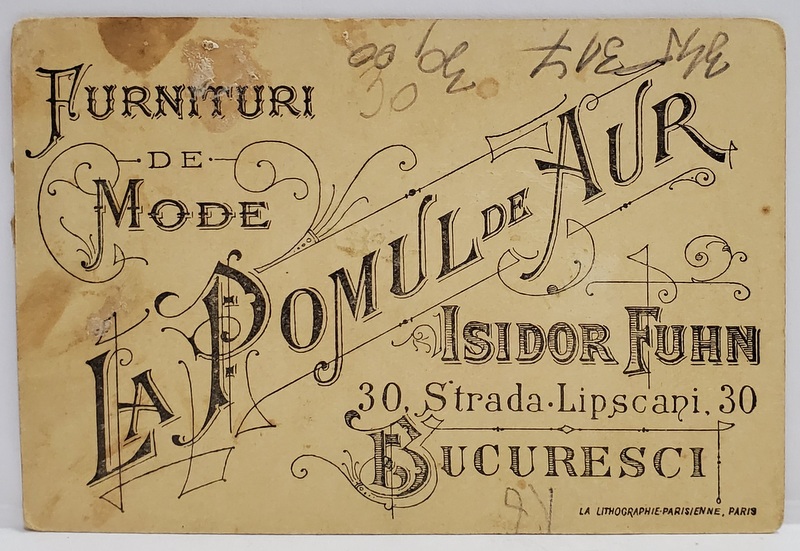 FURNITURI
DE
MODE
LA POMUL DE AUR
ISIDOR FUHN
30, Strada·Lipscani, 30
BUCURESCI
LA LITHOGRAPHIE-PARISIENNE, PARIS